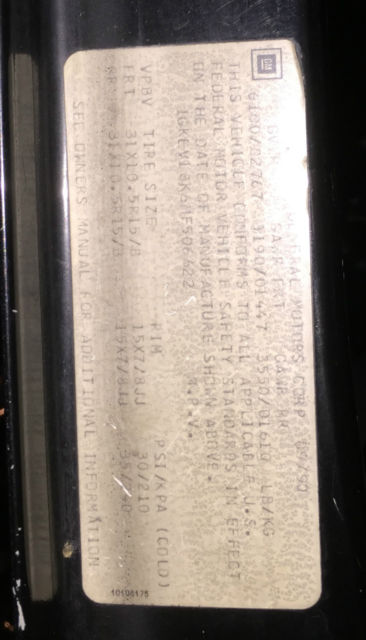 GM
GENERAL MOTORS CORP
GVWR GAWR FRT GAWR RR
6100/02767 3100/01447 3550/01610 LB/KG
THIS VEHICLE CONFORMS TO ALL APPLICABLE U.S.
FEDERAL MOTOR VEHICLE SAFETY STANDARDS IN EFFECT
ON THE DATE OF MANUFACTURE SHOWN ABOVE.
M.P.V.
VPBV TIRE SIZE RIM PSI/KPA (COLD)
FRT 31X10.5R15/B 15X7/8JJ 30/210
RR 31X10.5R15/B 15X7/8JJ
SEE OWNERS MANUAL FOR ADDITIONAL INFORMATION
10108175